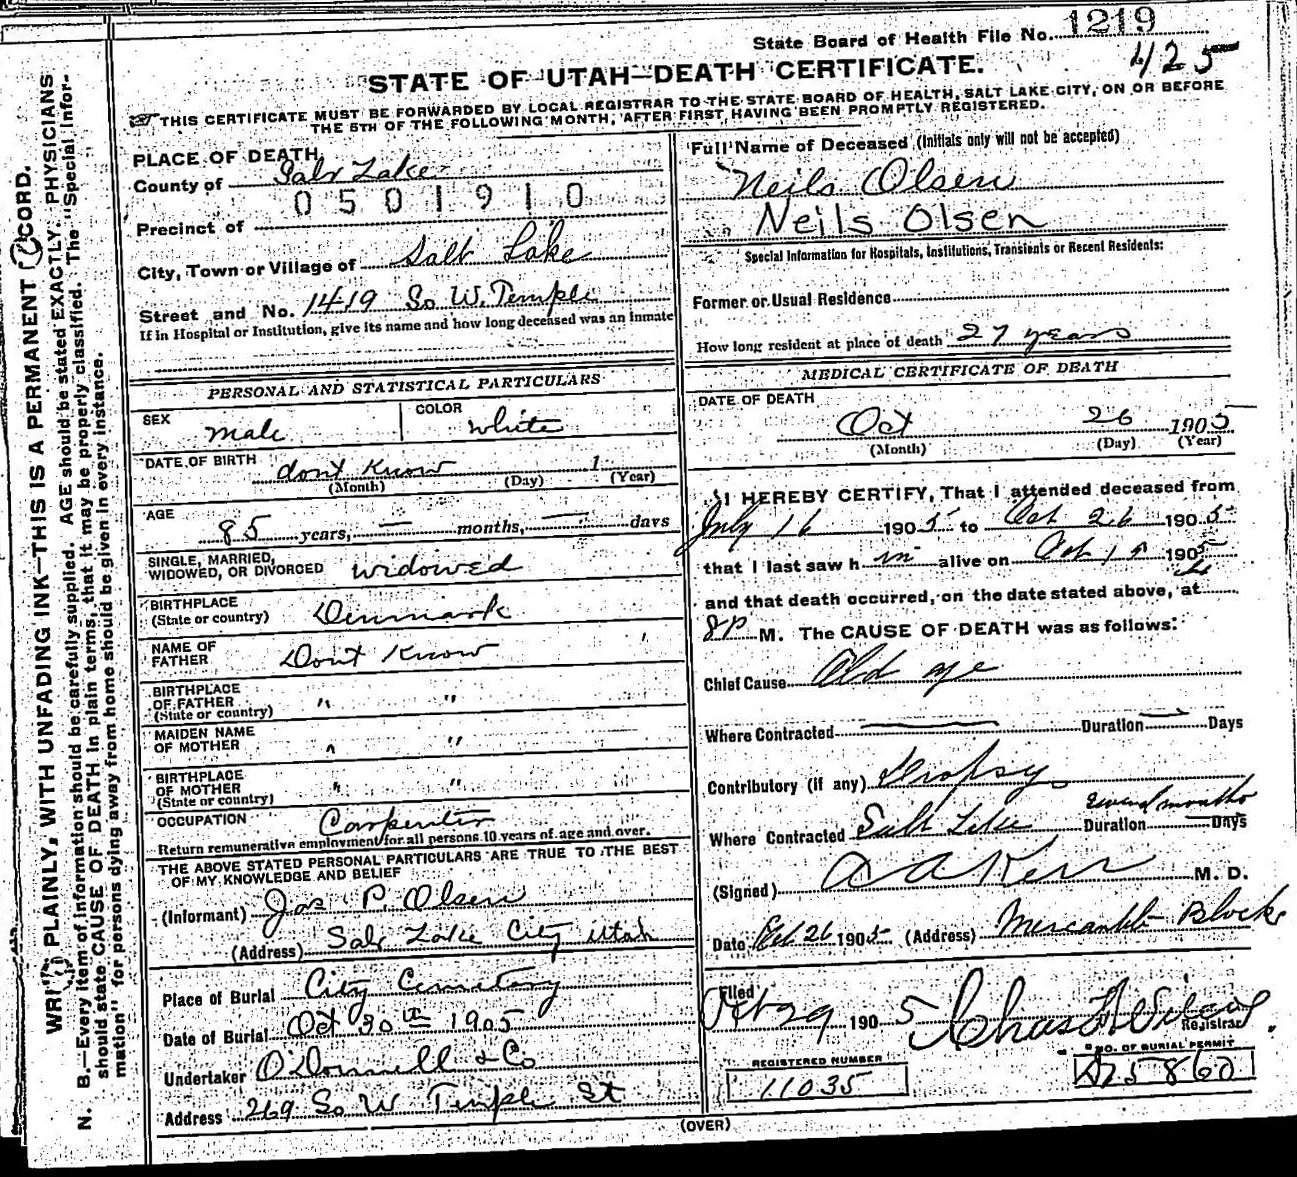 State Board of Health File No. 1219
425
STATE OF UTAH—DEATH CERTIFICATE.
THIS CERTIFICATE MUST BE FORWARDED BY LOCAL REGISTRAR TO THE STATE BOARD OF HEALTH, SALT LAKE CITY, ON OR BEFORE
THE 5TH OF THE FOLLOWING MONTH, AFTER FIRST HAVING BEEN PROMPTLY REGISTERED.
PLACE OF DEATH
County of Salt Lake
0501910
Precinct of
City, Town or Village of Salt Lake
Street and No. 1419 So W. Temple
If in Hospital or Institution, give its name and how long deceased was an inmate
PERSONAL AND STATISTICAL PARTICULARS
SEX male
COLOR white
DATE OF BIRTH dont Know 1
(Month) (Day) (Year)
AGE 85 years, — months, — days
SINGLE, MARRIED,
WIDOWED, OR DIVORCED widowed
BIRTHPLACE
(State or country) Denmark
NAME OF
FATHER Dont Know
BIRTHPLACE
OF FATHER " "
(State or country)
MAIDEN NAME
OF MOTHER " "
BIRTHPLACE
OF MOTHER " "
(State or country)
OCCUPATION Carpenter
Return remunerative employment for all persons 10 years of age and over.
THE ABOVE STATED PERSONAL PARTICULARS ARE TRUE TO THE BEST
OF MY KNOWLEDGE AND BELIEF
(Informant) Jas P. Olsen
(Address) Salt Lake City Utah
Place of Burial City Cemetery
Date of Burial Oct 30th 1905
Undertaker O'Donnell & Co
Address 269 So W Temple St
Full Name of Deceased (Initials only will not be accepted)
Neils Olsen
Neils Olsen
Special Information for Hospitals, Institutions, Transients or Recent Residents:
Former or Usual Residence
How long resident at place of death 27 years
MEDICAL CERTIFICATE OF DEATH
DATE OF DEATH
Oct 26 1905
(Month) (Day) (Year)
I HEREBY CERTIFY, That I attended deceased from
July 16 1905 to Oct 26 1905
that I last saw h im alive on Oct 1905
and that death occurred, on the date stated above, at
8P M. The CAUSE OF DEATH was as follows:
Chief Cause Old age
Where Contracted — Duration — Days
Contributory (if any) Dropsy
several months
Where Contracted Salt Lake Duration Days
(Signed) A A Kerr M. D.
Date Oct 26 1905 (Address) Mercantile Block
Filed
Oct 29 1905 Chas Wilcox
Registrar
REGISTERED NUMBER
11035
NO. OF BURIAL PERMIT
A25860
(OVER)
WRITE PLAINLY, WITH UNFADING INK—THIS IS A PERMANENT RECORD.
N. B.—Every item of information should be carefully supplied. AGE should be stated EXACTLY. PHYSICIANS
should state CAUSE OF DEATH in plain terms, that it may be properly classified. The "Special Infor-
mation" for persons dying away from home should be given in every instance.